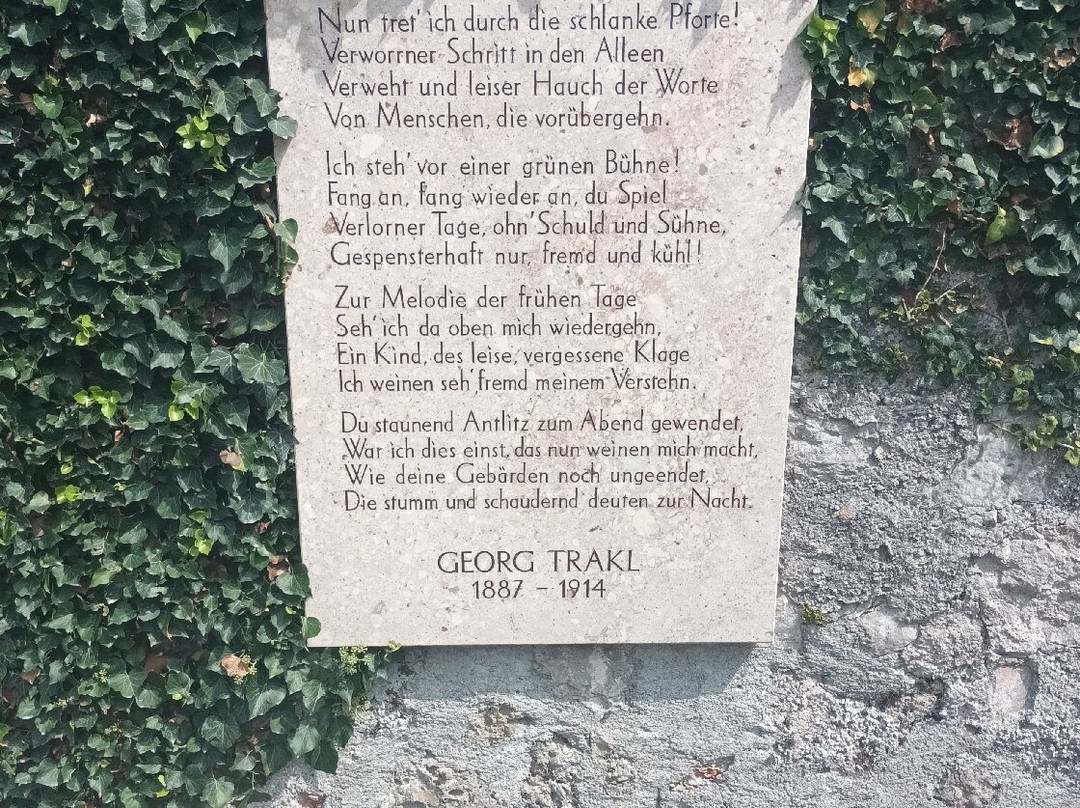 Nun tret' ich durch die schlanke Pforte!
Verworrner Schritt in den Alleen
Verweht und leiser Hauch der Worte
Von Menschen, die vorübergehn.
Ich steh' vor einer grünen Bühne!
Fang an, fang wieder an, du Spiel
Verlorner Tage, ohn' Schuld und Sühne,
Gespensterhaft nur, fremd und kühl!
Zur Melodie der frühen Tage
Seh' ich da oben mich wiedergehn,
Ein Kind, des leise, vergessene Klage
Ich weinen seh', fremd meinem Verstehn.
Du staunend Antlitz zum Abend gewendet,
War ich dies einst, das nun weinen mich macht,
Wie deine Gebärden noch ungeendet,
Die stumm und schaudernd deuten zur Nacht.
GEORG TRAKL
1887 - 1914